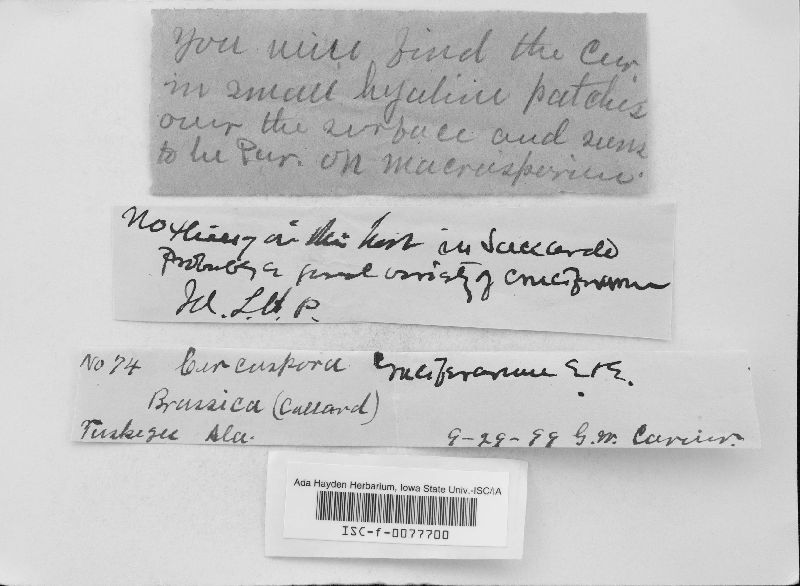 You will find the Cer.
in small hyaline patches
over the surface and seems
to be Par. on macrosporium.
Nothing on this host in Saccardo
Probably a good variety of cruciferarum
Fl. L.H.P.
No 74 Cercospora Cruciferarum E. & E.
Brassica (Collard)
Tuskegee Ala. 9-29-99 G.W. Carver.
Ada Hayden Herbarium, Iowa State Univ.-ISC/IA
ISC-f-0077700